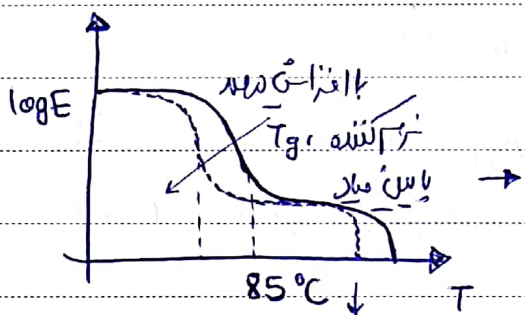 logE
با افزایش درصد
نرم کننده، Tg
پایین میاد
85°C
T